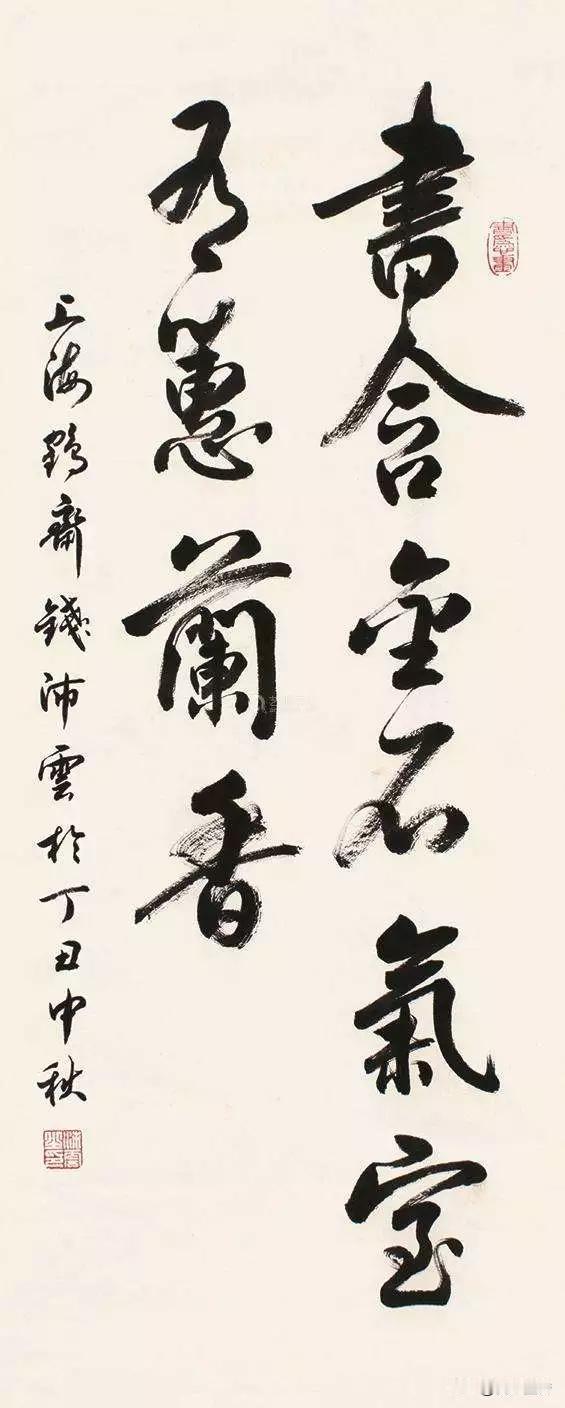 書含金石氣室
有蕙蘭香
上海鶴齋錢沛雲於丁丑中秋